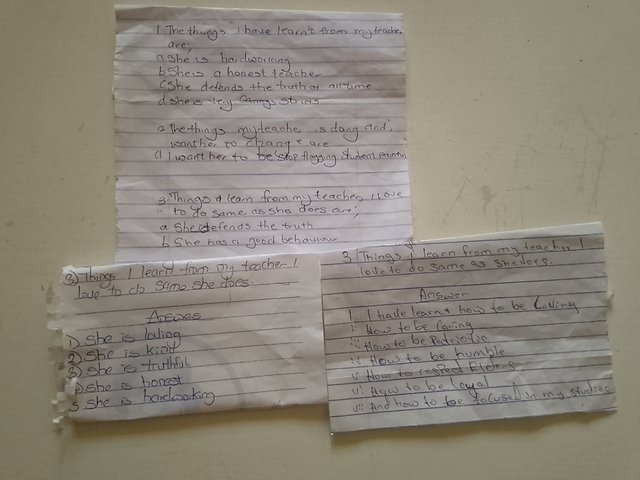 1 The things i have learn't from my teacher
are;
a She is hardworking
b She is a honest teacher
c She defends the truth at all time
d she is very strict
2 The things my teache is doing and
want her to change are
a I want her to be stop flogging student
3. Things i learn from my teacher I love
to do same as she does are;
a She defends the truth
b She has a good behaviour
3) Things I learn from my teacher I
love to do same she does.
Answes
1) She is loving
2) She is kind
3) She is truthful
4) She is honest
5 She is hardworking
3 Things i learn from my teacher I
love to do same as she does.
Answer
i I have learnt how to be Loving
ii How to be caring
iii How to be Patriotic
iv How to be humble
v How to respect Elders
vi How to be loyal
vii And how to be focused in my studies